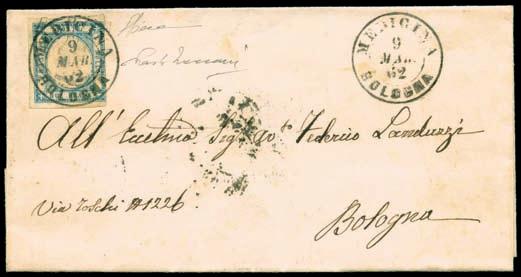 MEDICINA
9
MAR
62
BOLOGNA
MEDICINA
9
MAR
62
BOLOGNA
All' Sig. Avt. Federico Landuzzi
Via Toschi #1226
Bologna